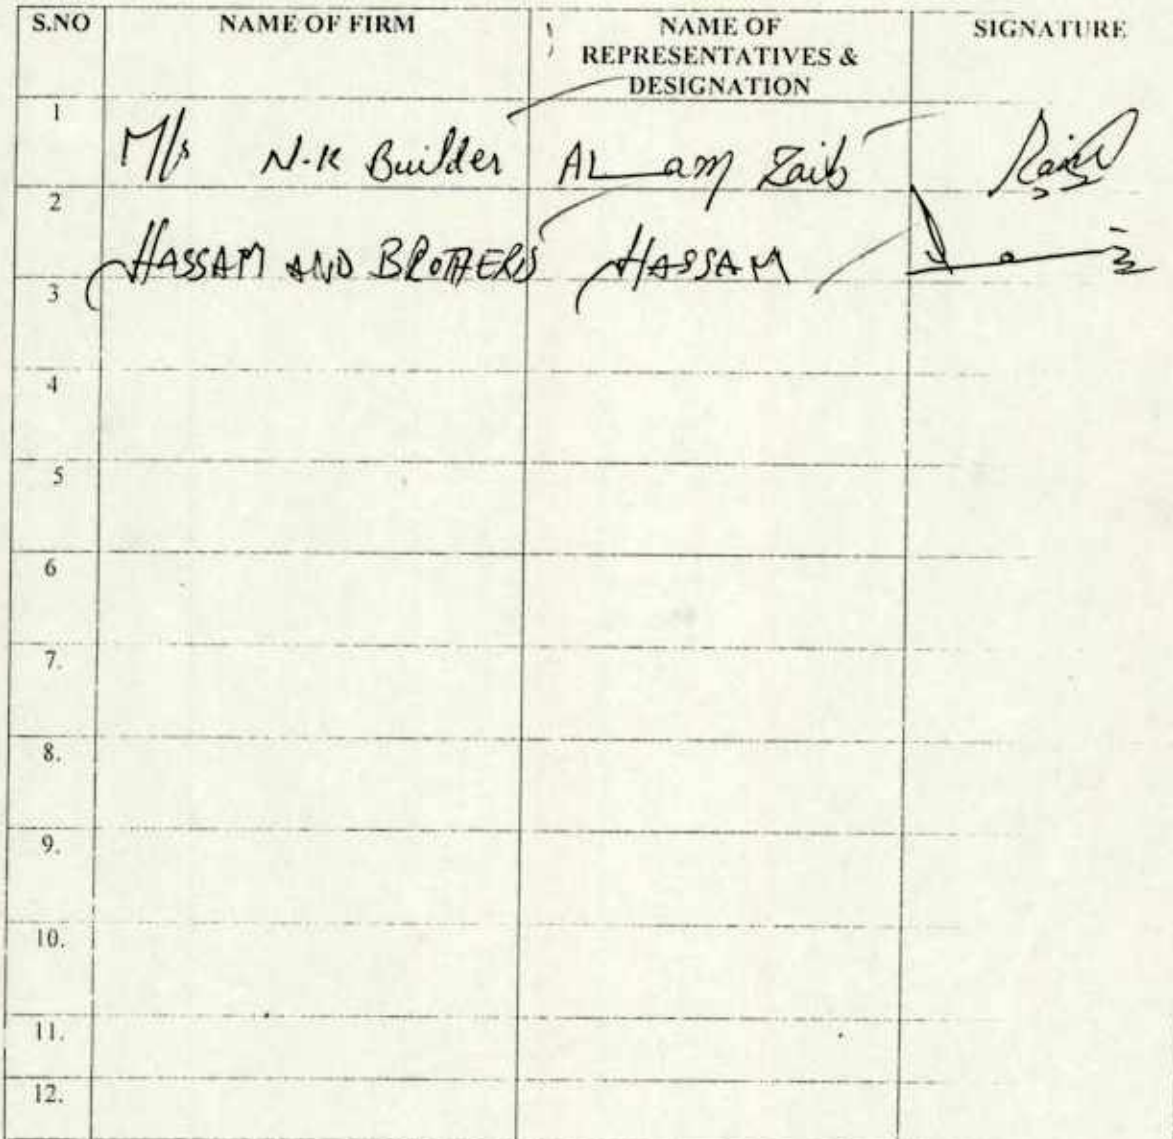 S.NO NAME OF FIRM NAME OF REPRESENTATIVES & DESIGNATION SIGNATURE
1 M/s N.K Builder ALam Zaib
2 HASSAM AND BROTHERS HASSAM
3
4
5
6
7.
8.
9.
10.
11.
12.